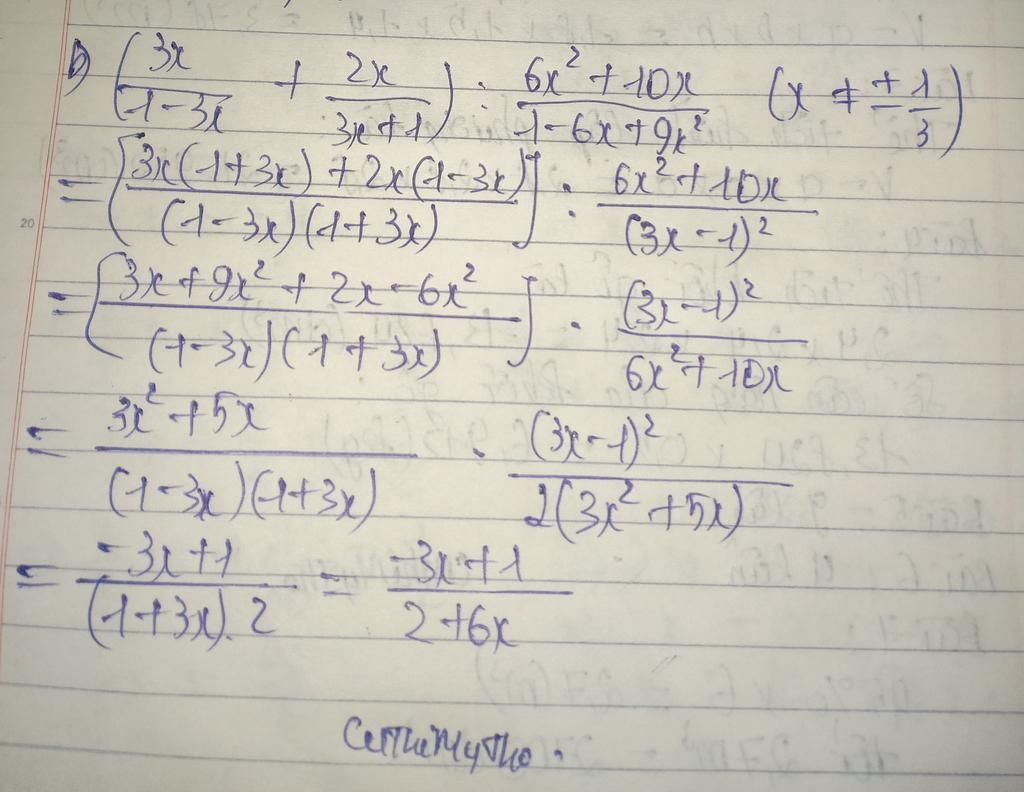 b) (3x/(1-3x) + 2x/(3x+1)) : (6x²+10x)/(1-6x+9x²) (x ≠ ±1/3)
= [(3x(1+3x)+2x(1-3x))/((1-3x)(1+3x))] : (6x²+10x)/(3x-1)²
= [(3x+9x²+2x-6x²)/((1-3x)(1+3x))] . (3x-1)²/(6x²+10x)
= (3x²+5x)/((1-3x)(1+3x)) . (3x-1)²/(2(3x²+5x))
= (-3x+1)/((1+3x).2) = (-3x+1)/(2+6x)